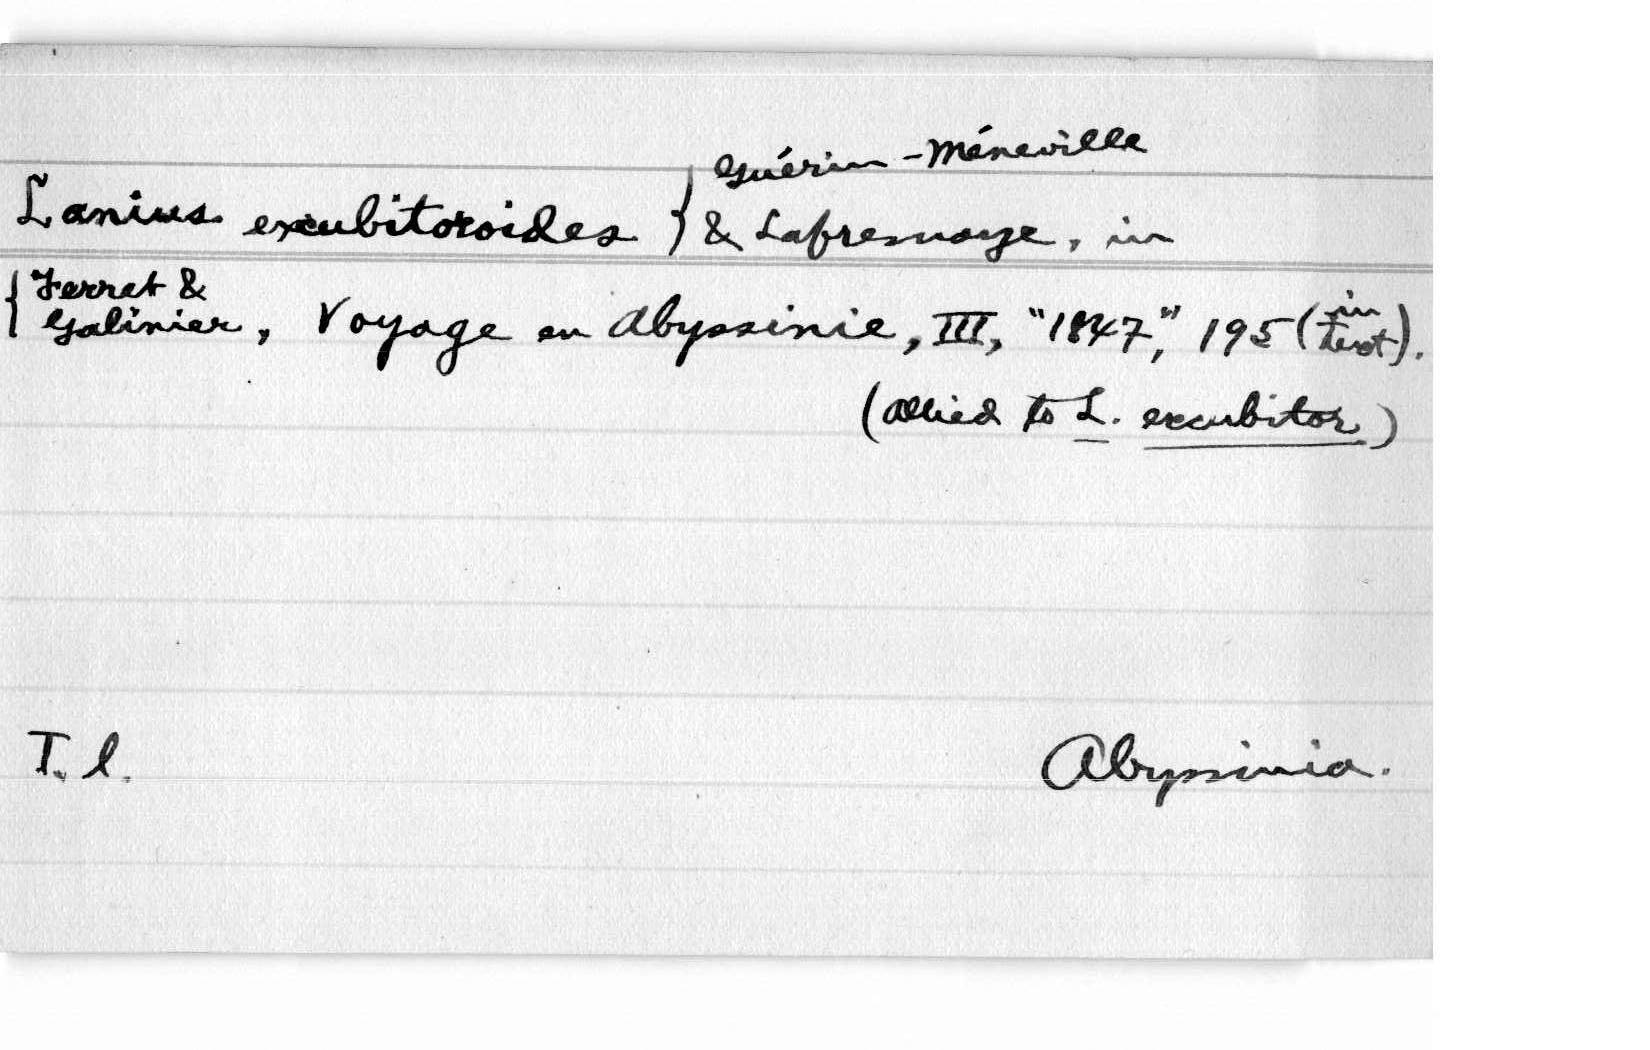 Lanius excubitoroides } Guérin-Méneville
& Lafresnaye, in
{ Ferret &
Galinier, Voyage en Abyssinie, III, "1847," 195 (in text).
(allied to L. excubitor)
T. l. Abyssinia.